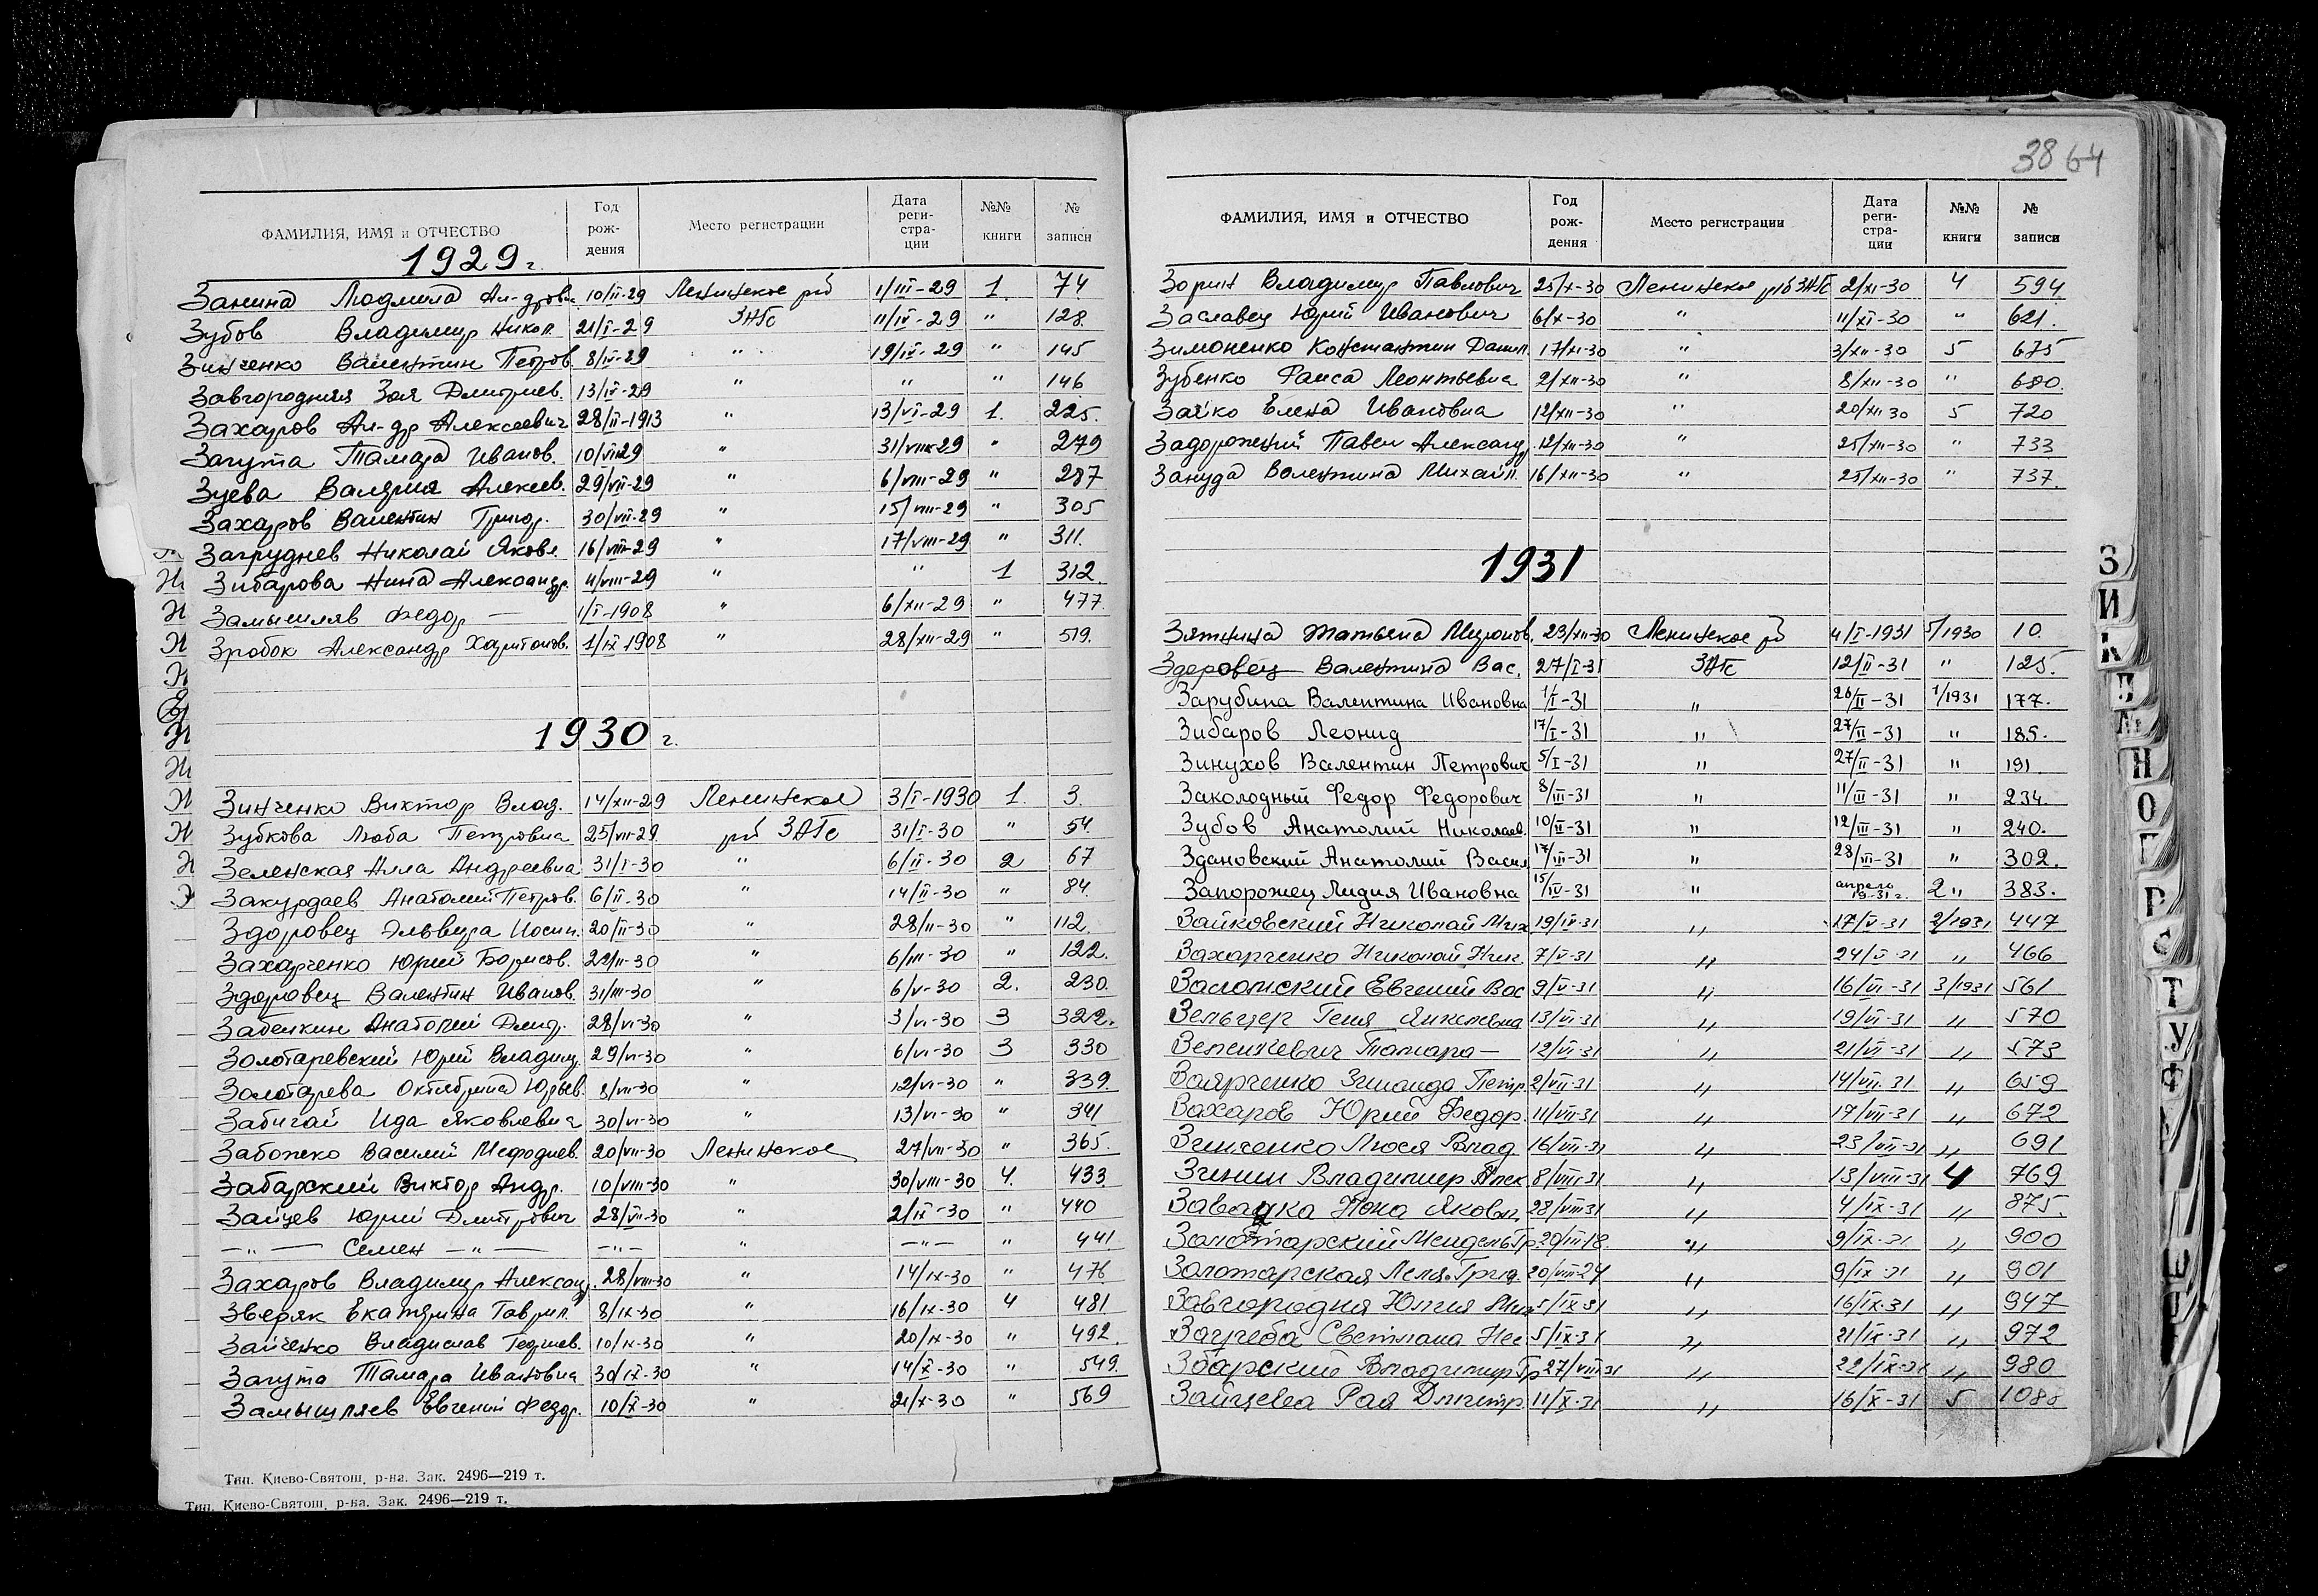 38 64
ФАМИЛИЯ, ИМЯ и ОТЧЕСТВО Год рождения Место регистрации Дата регистрации №№ книги № записи
1929 г.
Занина Людмила Ал-дровн. 10/II-29 Ленинское рб 1/III-29 1. 74
Зубов Владимир Никол. 21/I-29 ЗАГс 11/IV-29 " 128.
Зинченко Валентин Петров. 8/IV-29 " 19/IV-29 " 145
Завгородняя Зоя Дмитриев. 13/IV-29 " " " 146
Захаров Ал-др Алексеевич 28/II-1913 " 13/VI-29 1. 225.
Загута Тамара Иванов. 10/VII29 " 31/VII-29 " 279
Зуева Валерия Алексев. 29/VII-29 " 6/VIII-29 " 287
Захаров Валентин Григор. 30/VII-29 " 15/VIII-29 " 305
Загруднев Николай Яковл. 16/VIII-29 " 17/VIII-29 " 311.
Зибарова Нина Александр. 4/VIII-29 " " 1 312.
Замышляв Федор — 1/I-1908 " 6/XII-29 " 477.
Зробок Александр Харитонов. 1/IX-1908 " 28/XII-29 " 519.
1930 г.
Зинченко Виктор Влад. 14/XII-29 Ленинское 3/I-1930 1. 3.
Зубкова Люба Петровна 25/VII-29 рб ЗАГс 31/I-30 " 54.
Зеленская Алла Андреевна 31/I-30 " 6/II-30 2 67
Закурдаев Анатолий Петров. 6/II-30 " 14/II-30 " 84.
Здоровец Эльвира Иосип. 20/II-30 " 28/II-30 " 112.
Захарченко Юрий Борисов. 22/II-30 " 6/III-30 " 122.
Здоровец Валентин Иванов. 31/III-30 " 6/V-30 2. 230.
Забелкин Анатолий Дмид. 28/VI-30 " 3/VI-30 3 322.
Золотаревский Юрий Владимр. 29/VI-30 " 6/VI-30 3 330
Золотарева Октябрина Юрьев. 8/VII-30 " 12/VI-30 " 339.
Забигай Ида Яковлевна 30/VI-30 " 13/VI-30 " 341
Забопко Василий Мефодиев. 20/VII-30 Ленинское 27/VII-30 " 365.
Забарский Виктор Андр. 10/VIII-30 " 30/VIII-30 4. 433.
Зайцев Юрий Дмитрович 28/VII-30 " 2/IX-30 " 440
—"— Семен —"— —"— " —"— " 441.
Захаров Владимир Александ. 28/VIII-30 " 14/IX-30 " 476
Зверяк Екатерина Гаврил. 8/IX-30 " 16/IX-30 4 481
Зайченко Владислав Георгиев. 10/IX-30 " 20/IX-30 " 492.
Загута Тамара Ивановна 30/IX-30 " 14/X-30 " 549.
Замышляев Евгений Федор. 10/X-30 " 21/X-30 " 569
Тип. Киево-Святош. р-на. Зак. 2496—219 т.
Тип. Киево-Святош. р-на. Зак. 2496—219 т.
ФАМИЛИЯ, ИМЯ и ОТЧЕСТВО Год рождения Место регистрации Дата регистрации №№ книги № записи
Зорин Владимир Павлович 25/X-30 Ленинское рб ЗАГс 2/XI-30 4 594.
Заславец Юрий Иванович 6/X-30 " 11/XI-30 " 621.
Зимоненко Константин Данил. 17/XI-30 " 3/XII-30 5 675
Зубенко Раиса Леонтьевна 2/XII-30 " 8/XII-30 " 680.
Зайко Елена Ивановна 12/XII-30 " 20/XII 30 5 720
Задорожный Павел Александр. 12/XII-30 " 25/XII-30 " 733
Зануда Валентина Михайл. 16/XII-30 " 25/XII-30 " 737.
1931
Зятнина Татьяна Миронов. 23/XII-30 Ленинское рб 4/I-1931 5/1930 10.
Здоровец Валентина Вас. 27/I-31 ЗАГс 12/II-31 " 125.
Зарубина Валентина Ивановна 1/I-31 " 26/II-31 1/1931 177.
Зибаров Леонид 17/I-31 " 27/II-31 " 185.
Зинухов Валентин Петрович 5/I-31 " 27/II-31 " 191
Заколодный Федор Федорович 8/III-31 " 11/III-31 " 234.
Зубов Анатолий Николаев. 10/II-31 " 12/III-31 " 240.
Здановский Анатолий Васил 17/III-31 " 28/III-31 " 302.
Запорожец Лидия Ивановна 15/IV-31 " апреля 19-31 г. 2 " 383.
Зайковский Николай Мих 19/IV-31 " 17/V-31 2/1931 447
Захарченко Николай Ник. 7/V-31 " 24/V-31 " 466
Заломский Евгений Вас 9/V-31 " 16/VI-31 3/1931 561
Зельцер Геня Янкелевна 13/VI-31 " 19/VI-31 " 570
Зелинкевич Тамара — 12/VI-31 " 21/VI-31 " 573
Заярченко Зинаида Петр. 2/VII-31 " 14/VII-31 " 659
Захаров Юрий Федор. 11/VII-31 " 17/VII-31 " 672
Зинченко Люся Влад 16/VII-31 " 23/VII-31 " 691
Зинин Владимир Алек 8/VIII-31 " 13/VIII-31 4 769
Завадка Нона Яковл. 28/VIII31 " 4/IX-31 " 875.
Золотарский Мендель Гр 20/III-18. " 9/IX-31 " 900
Золотарская Леля Григ. 20/VIII-24 " 9/IX-31 " 901
Завгородня Юлия Мих 5/IX-31 " 16/IX-31 " 947
Загреба Светлана Нес 5/IX-31 " 21/IX-31 " 972
Збарский Владимир Гр 27/VIII-31 " 22/IX-31 " 980
Зайцева Рая Дмитр. 11/X-31 " 16/X-31 5 1088
З
И
К
Л
М
Н
О
П
Р
С
Т
У
Ф
Ш